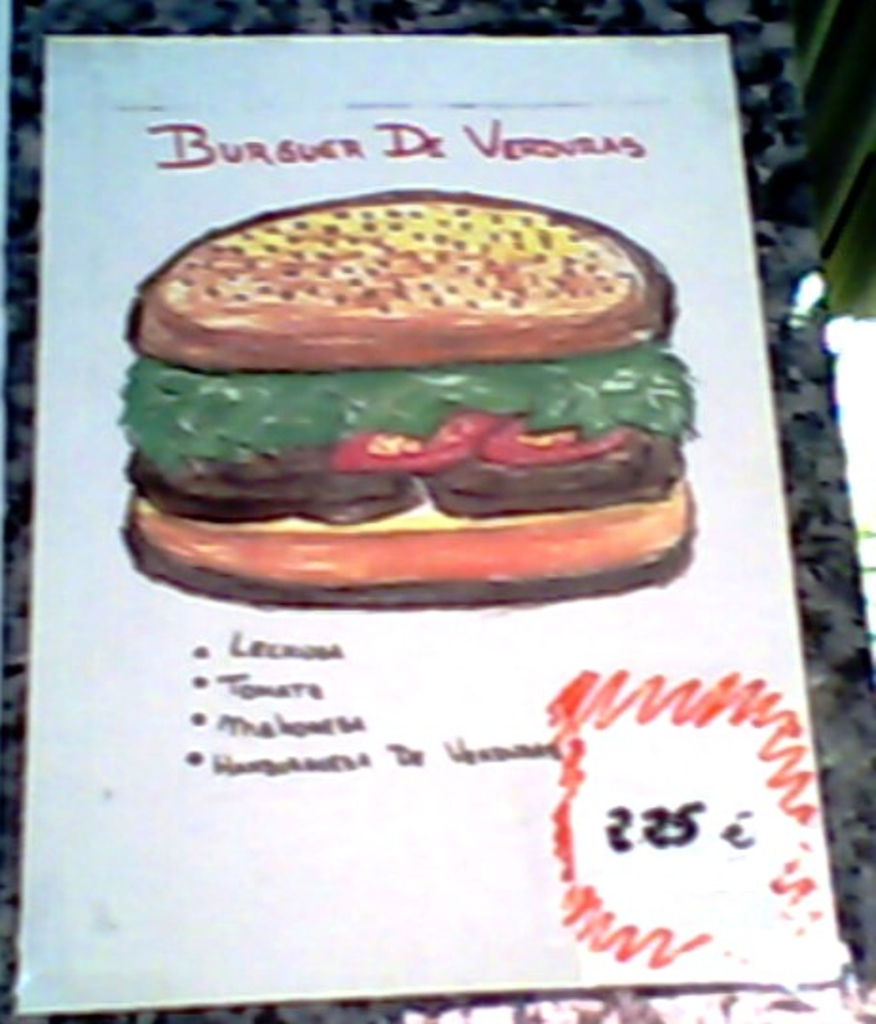 BURGUER DE VERDURAS
• LECHUGA
• TOMATE
• MAHONESA
• HAMBURGUESA DE VERDURAS
2.25 €